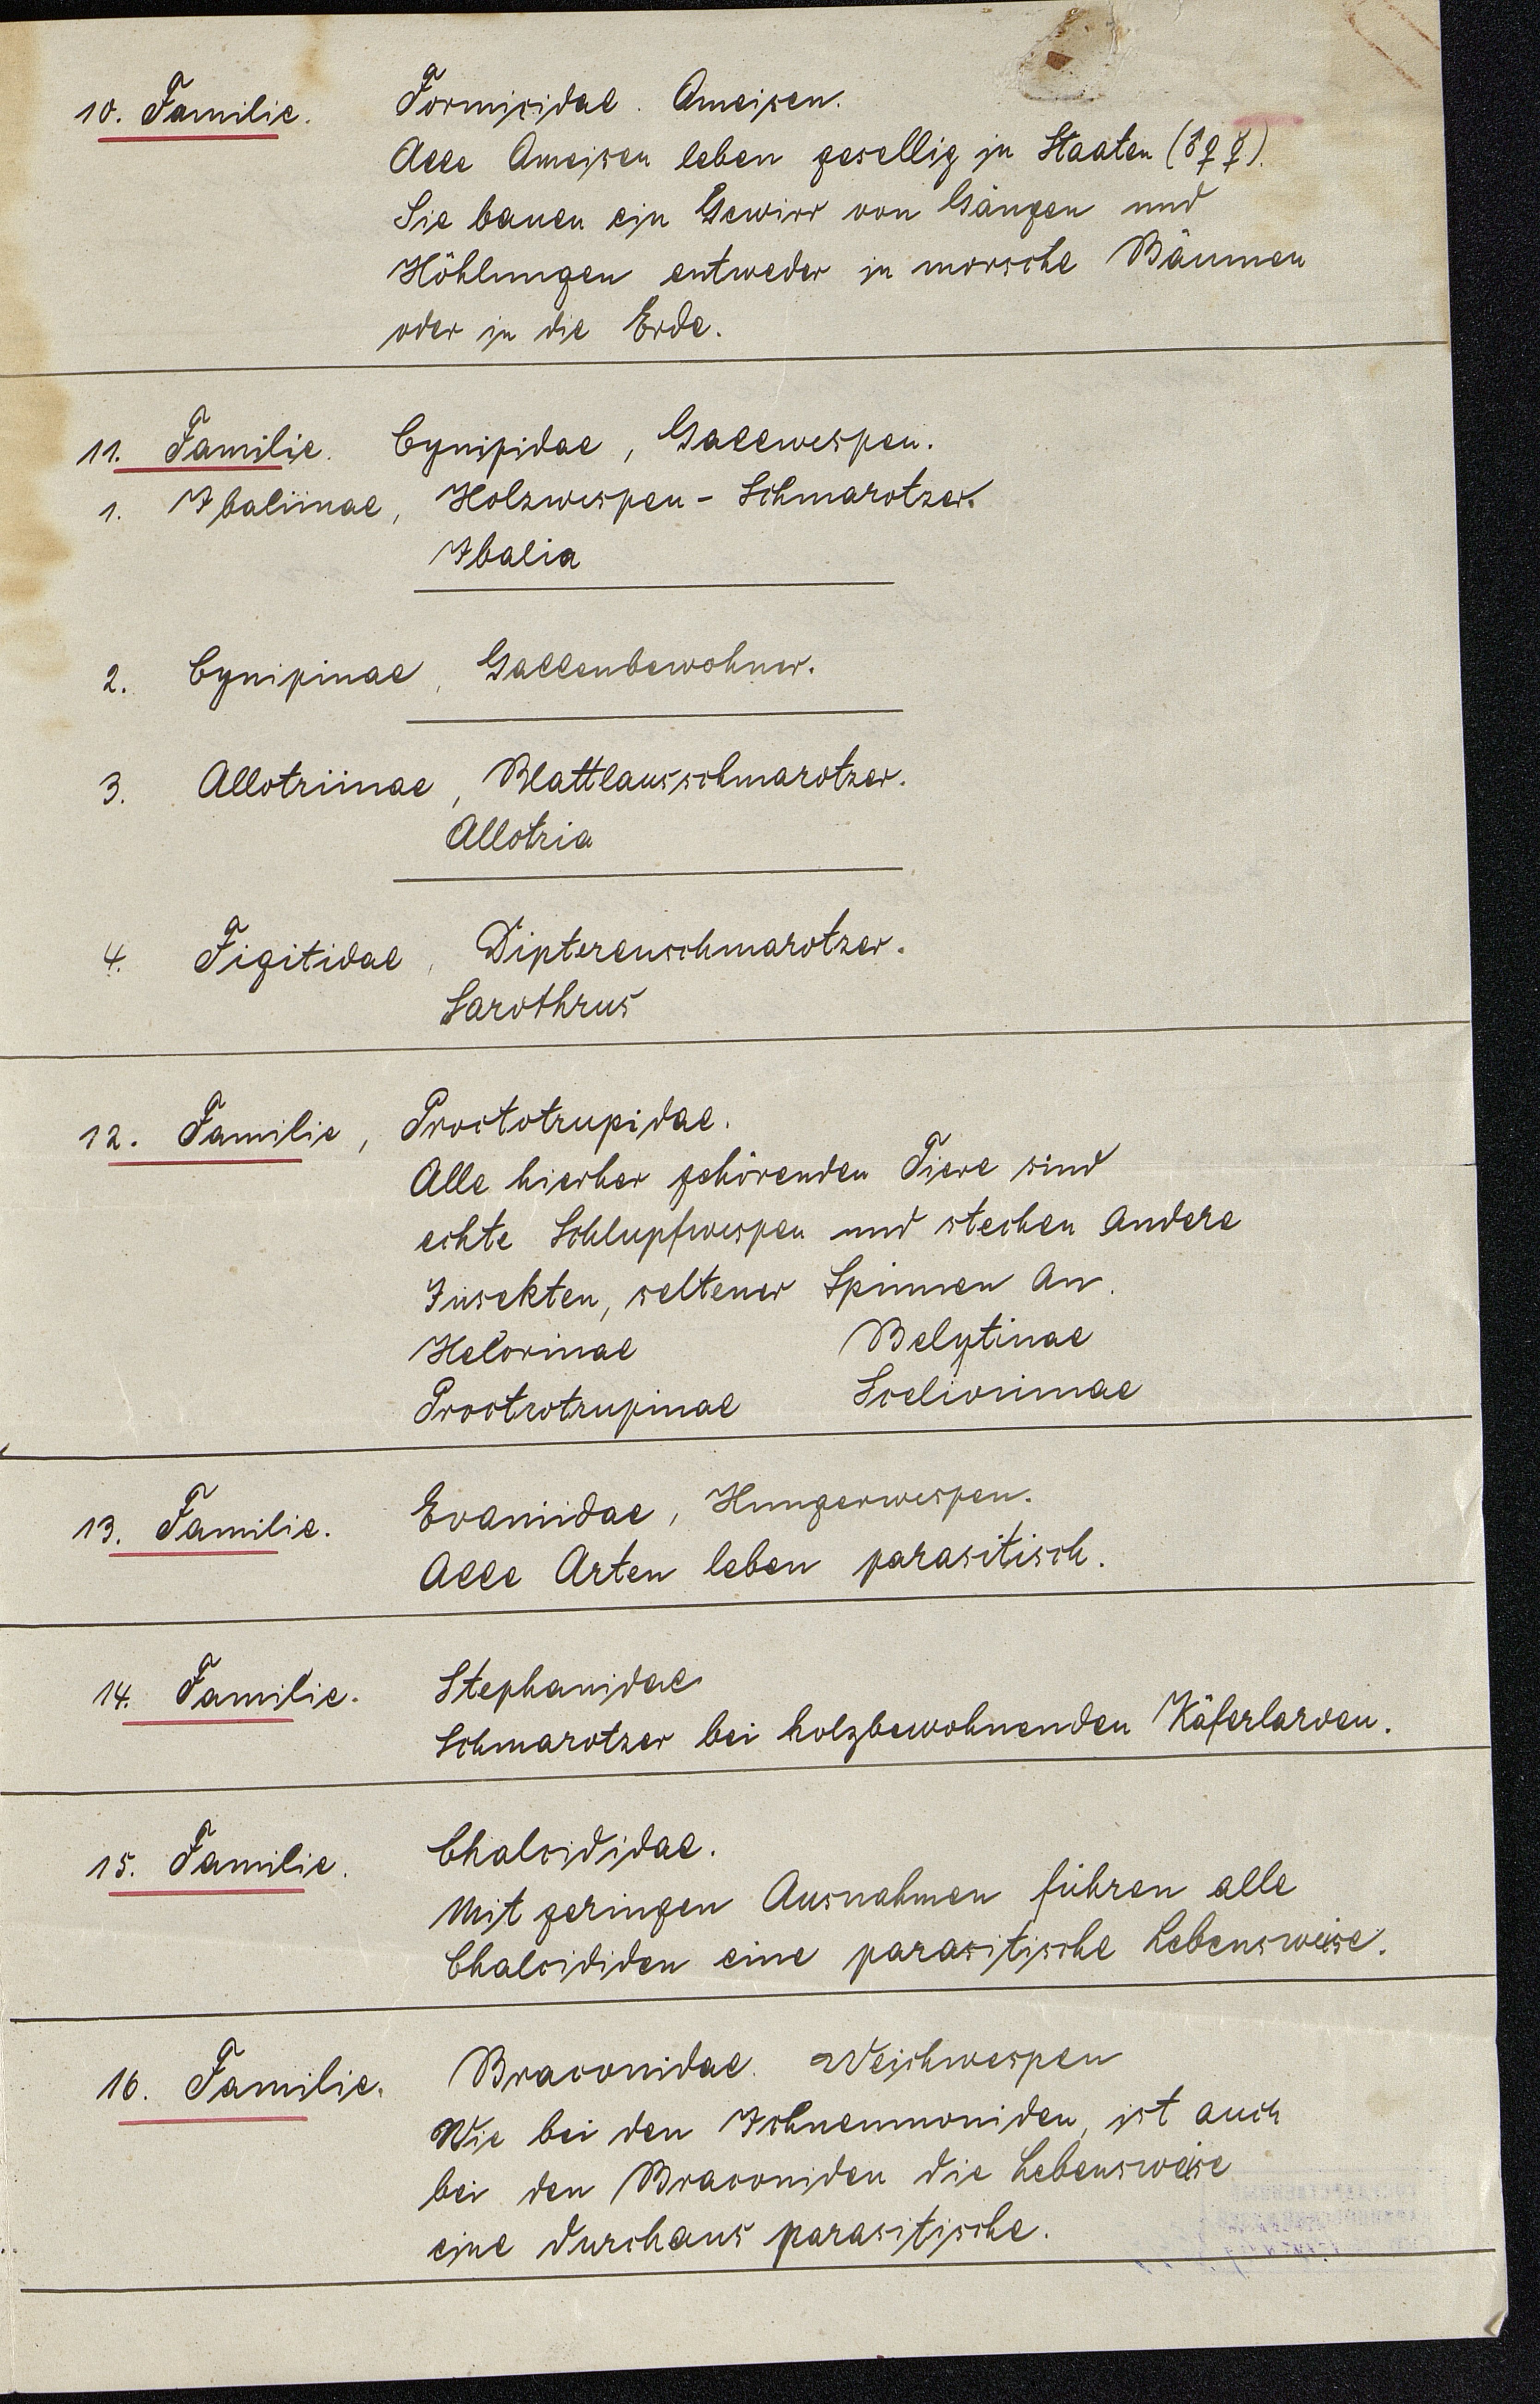 10. Familie. Formicidae. Ameisen.
Alle Ameisen leben gesellig in Staaten (♂♀☿).
Sie bauen ein Gewirr von Gängen und
Höhlungen entweder in morsche Bäumen
oder in die Erde.
11. Familie. Cynipidae, Gallwespen.
1. Ibaliinae, Holzwespen-Schmarotzer.
Ibalia
2. Cynipinae, Gallenbewohner.
3. Allotriinae, Blattlausschmarotzer.
Allotria
4. Figitidae, Dipterenschmarotzer.
Sarothrus
12. Familie, Proctotrupidae.
Alle hierher gehörenden Tiere sind
echte Schlupfwespen und stechen andere
Insekten, seltener Spinnen an.
Helorinae Belytinae
Proctrotrupinae Scelioninae
13. Familie. Evaniidae, Hungerwespen.
Alle Arten leben parasitisch.
14. Familie. Stephanidae
Schmarotzer bei holzbewohnenden Käferlarven.
15. Familie. Chalcididae.
Mit geringen Ausnahmen führen alle
Chalcididen eine parasitische Lebensweise.
16. Familie. Braconidae. Weichwespen
Wie bei den Ichneumoniden, ist auch
bei den Braconiden die Lebensweise
eine durchaus parasitische.